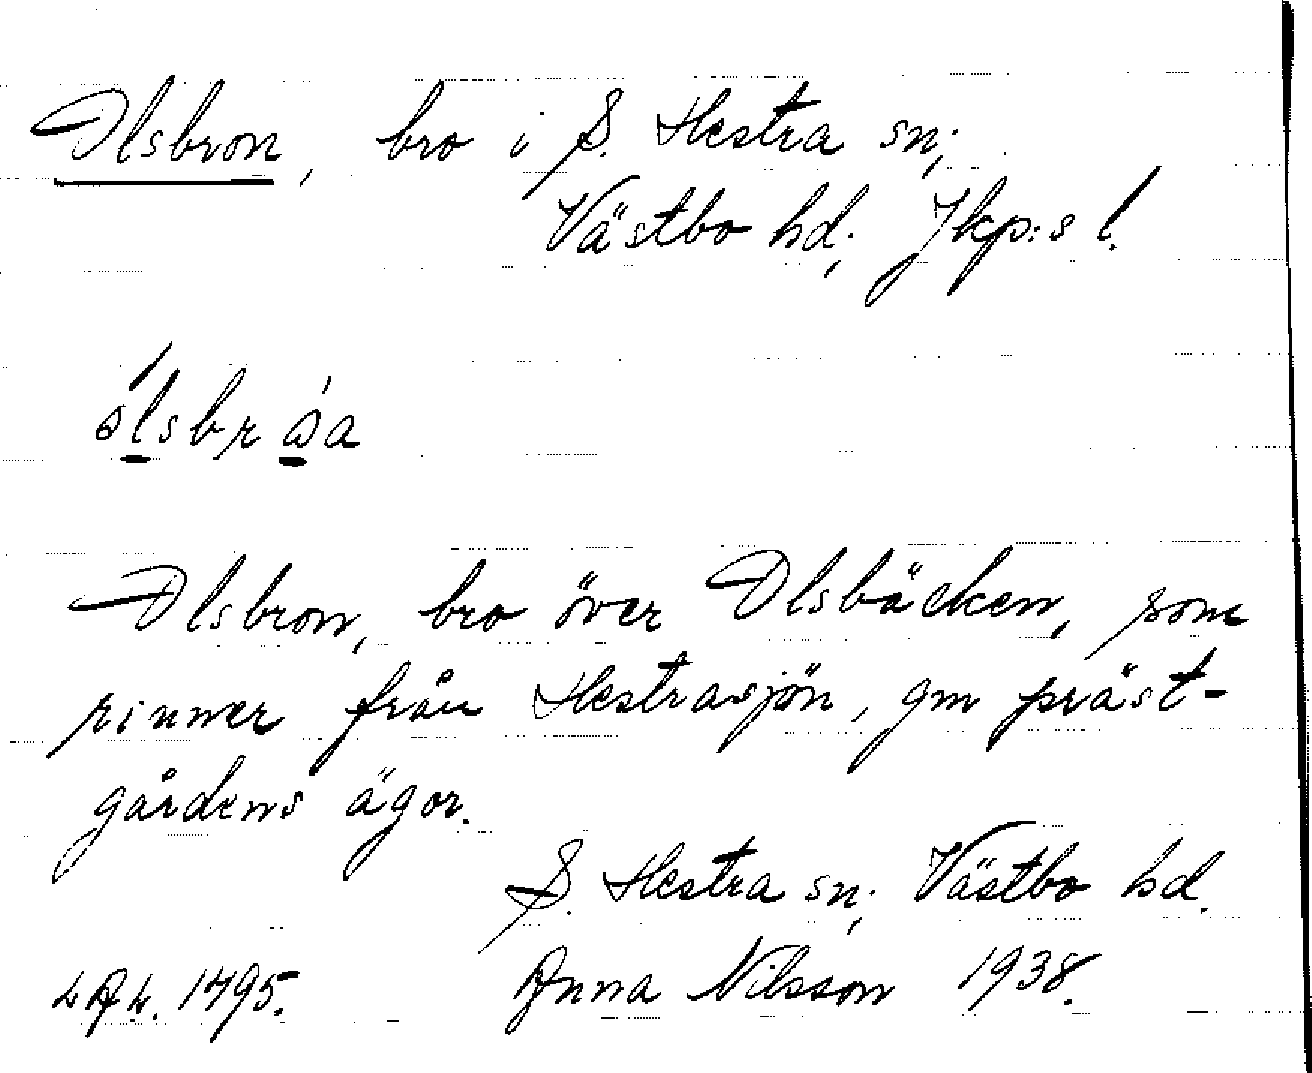 Olsbron, bro i S. Hestra sn;
Västbo hd; Jkp:s l.
Olsbron, bro över Olsbäcken, som
rinner från Hestrasjön, gm präst-
gårdens ägor.
S. Hestra sn; Västbo hd.
Anna Nilsson 1938.